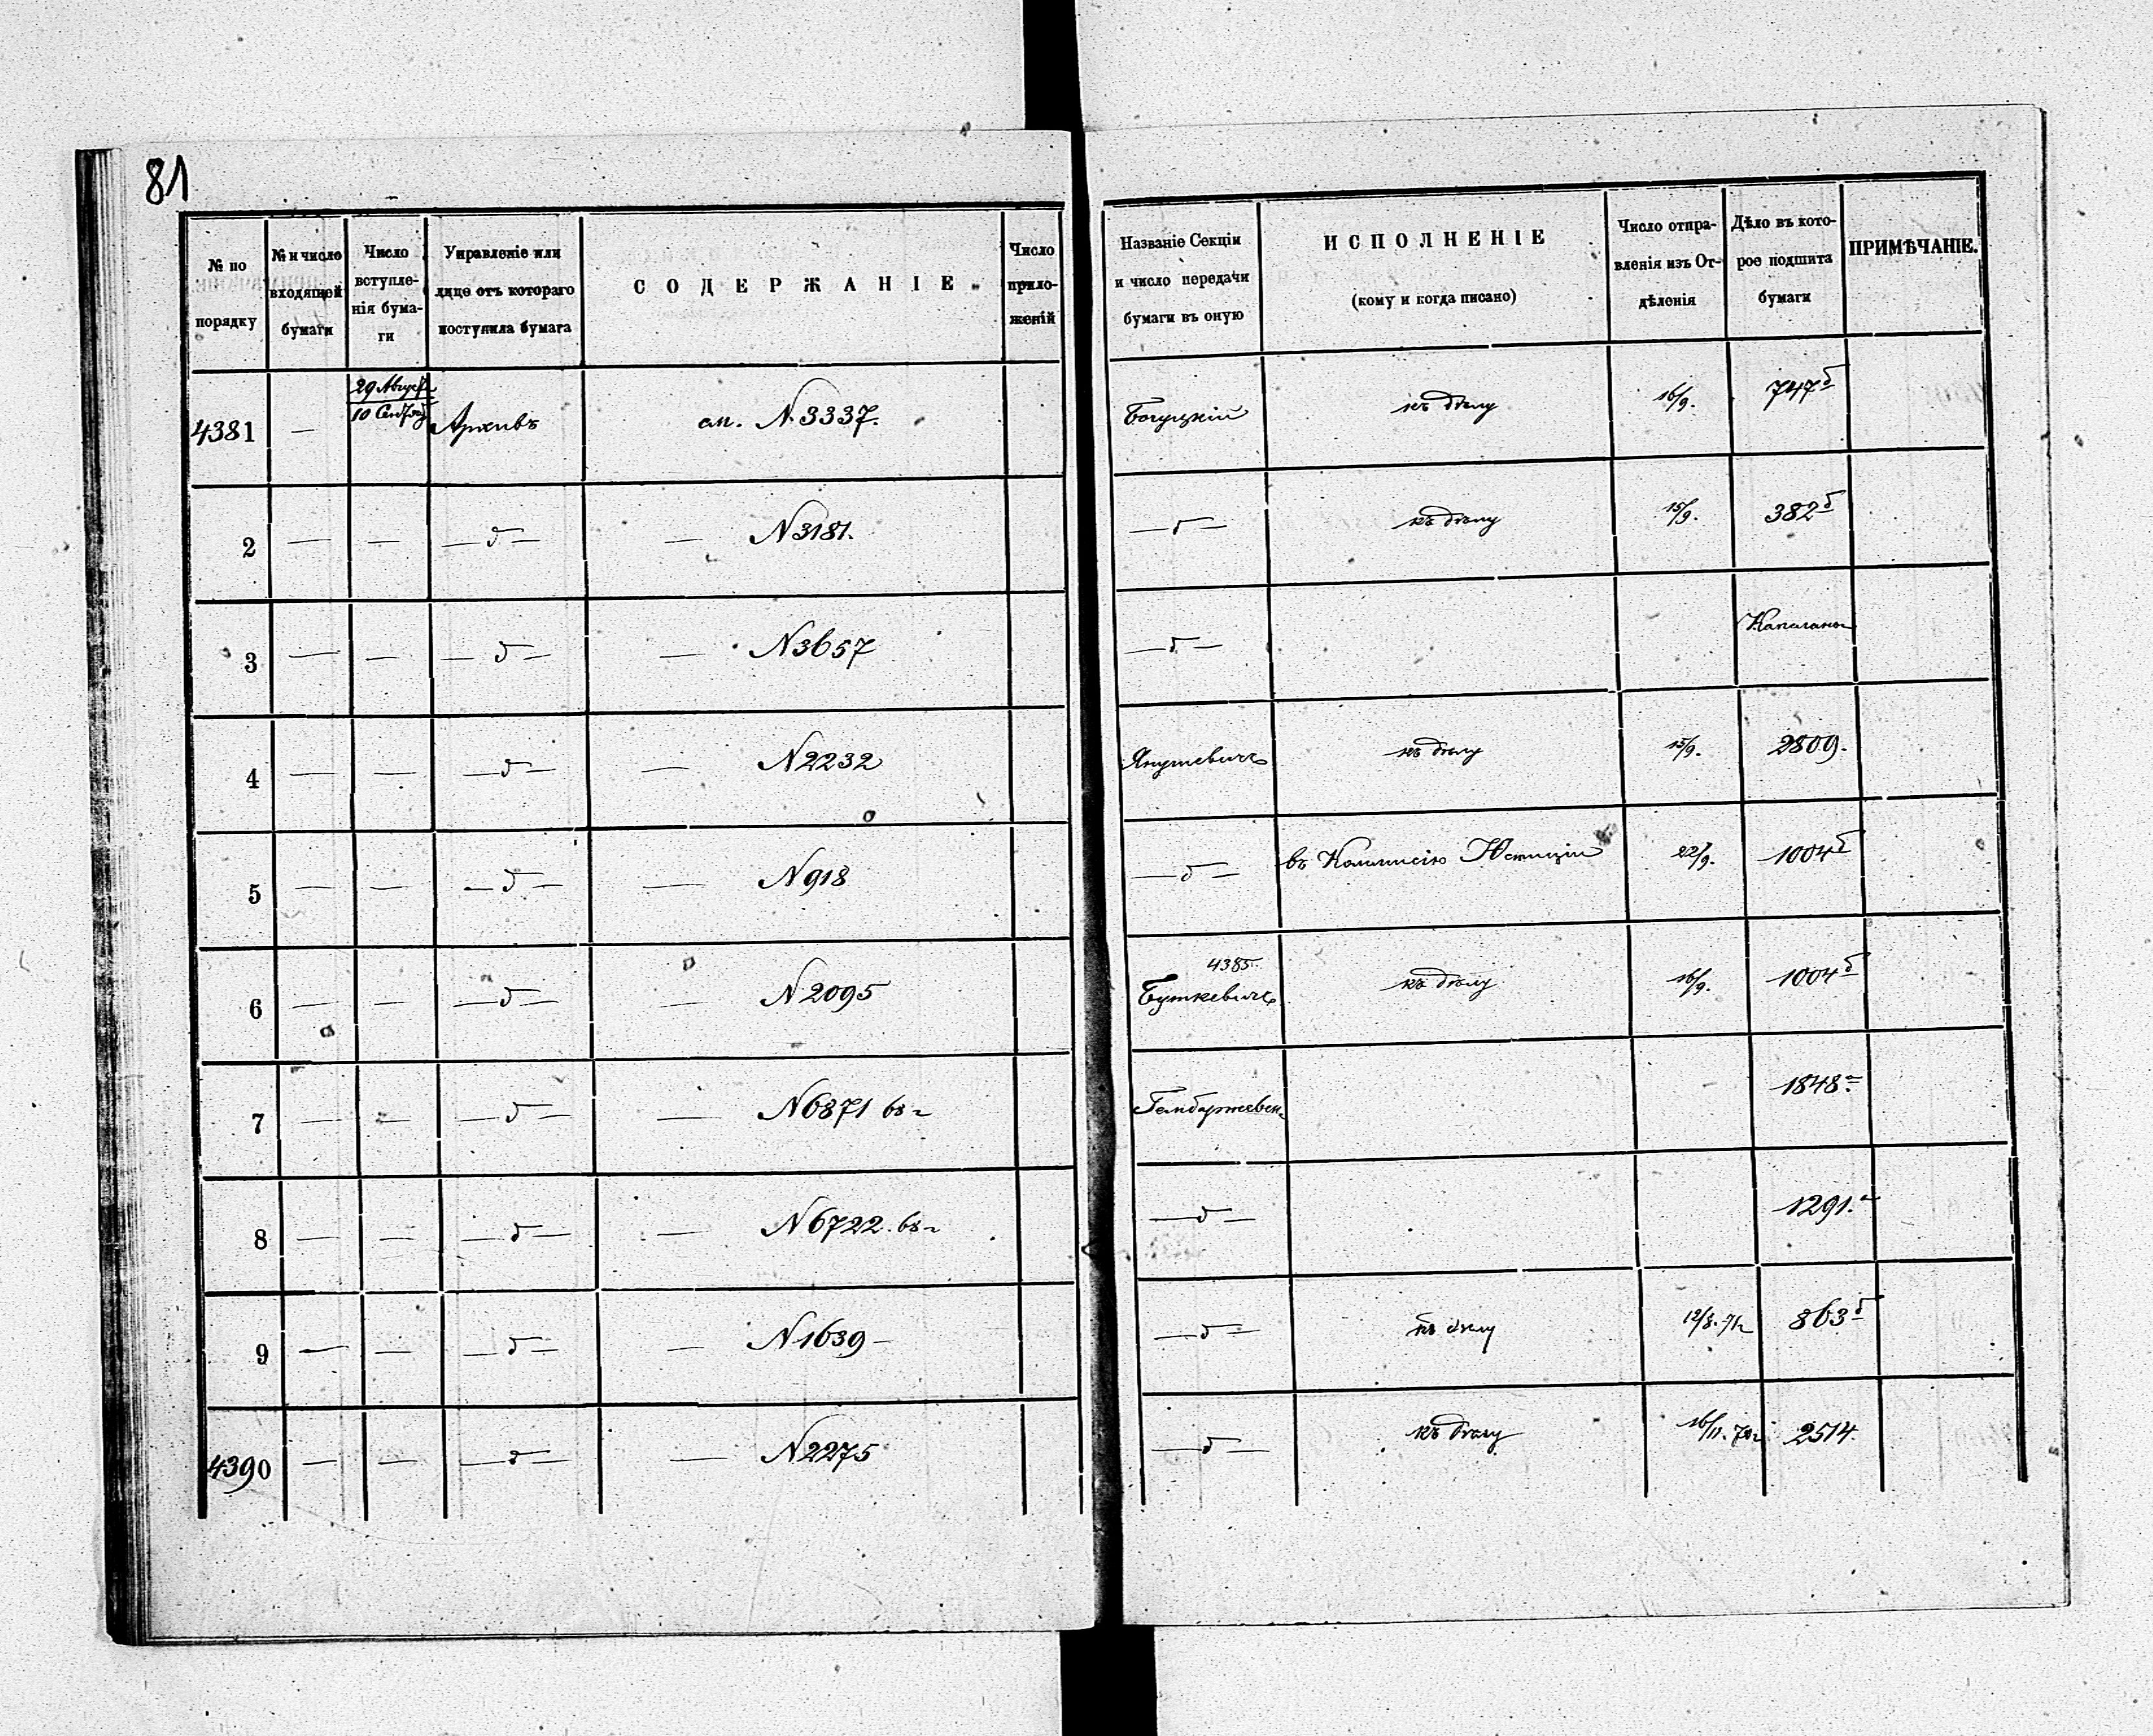 81
№ по порядку
№ и число входящей бумаги
Число вступленія бумаги
Управленіе или лице отъ котораго поступила бумага
СОДЕРЖАНІЕ.
Число приложеній
Названіе Секціи и число передачи бумаги въ оную
ИСПОЛНЕНІЕ
(кому и когда писано)
Число отправленія изъ Отдѣленія
Дѣло въ которое подшита бумаги
ПРИМѢЧАНІЕ.
4381 — 29 Августа / 10 Сентяб Архивъ см. N 3337. Богуцкій къ дѣлу 16/9. 747 б
2 — — — д — — N 3181. — д — къ дѣлу 15/9. 382 б
3 — — — д — — N 3657 — д —
4 — — — д — — N 2232 Янушевичъ къ дѣлу 15/9. 2809.
5 — — — д — — N 918 — д — въ Коммисію Юстиціи 22/9. 1004 б
4385.
6 — — — д — — N 2095 Буткевичъ къ дѣлу 16/9. 1004 б
7 — — — д — — N 6871 68 г 1848 а
8 — — — д — — N 6722. 68 г — д — 1291. а
9 — — — д — — N 1639 — — д — къ дѣлу 12/8. 71 г 863 б
4390 — — — д — — N 2275 — д — къ дѣлу 16/11. 70 г 2514.